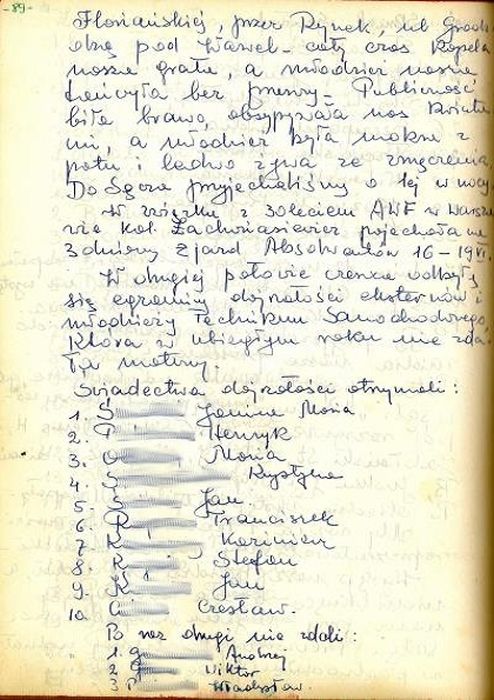 -89-
Floriańskiej, przez Rynek, ul. Grodz-
ką pod Wawel - cały czas kapela
nasza grała, a młodzież nasza
tańczyła bez przerwy. Publiczność
biła brawo, obsypywała nas kwiata
mi, a młodzież była mokra z
potu i ledwo żywa ze zmęczenia.
Do Sącza przyjechaliśmy o 1ej w nocy.
W związku z 30leciem AWF w Warsza
wie kol. Zachwiasiewicz pojechała na
3dniowy Zjazd Absolwentów 16-19 VI.
W drugiej połowie czerwca odbyły
się egzaminy dojrzałości eksternów i
młodzieży Technikum Samochodowego,
która w ubiegłym roku nie zda-
ła matury.
Świadectwa dojrzałości otrzymali:
1. Ś Janina Maria
2. Henryk
3. Maria
4. S Krystyna
5. S Jan
6. R Franciszek
7. K Kazimierz
8. K Stefan
9. K Jan
10. C Czesław.
Po raz drugi nie zdali:
1. G Andrzej
2. Wiktor
3 P Władysław.